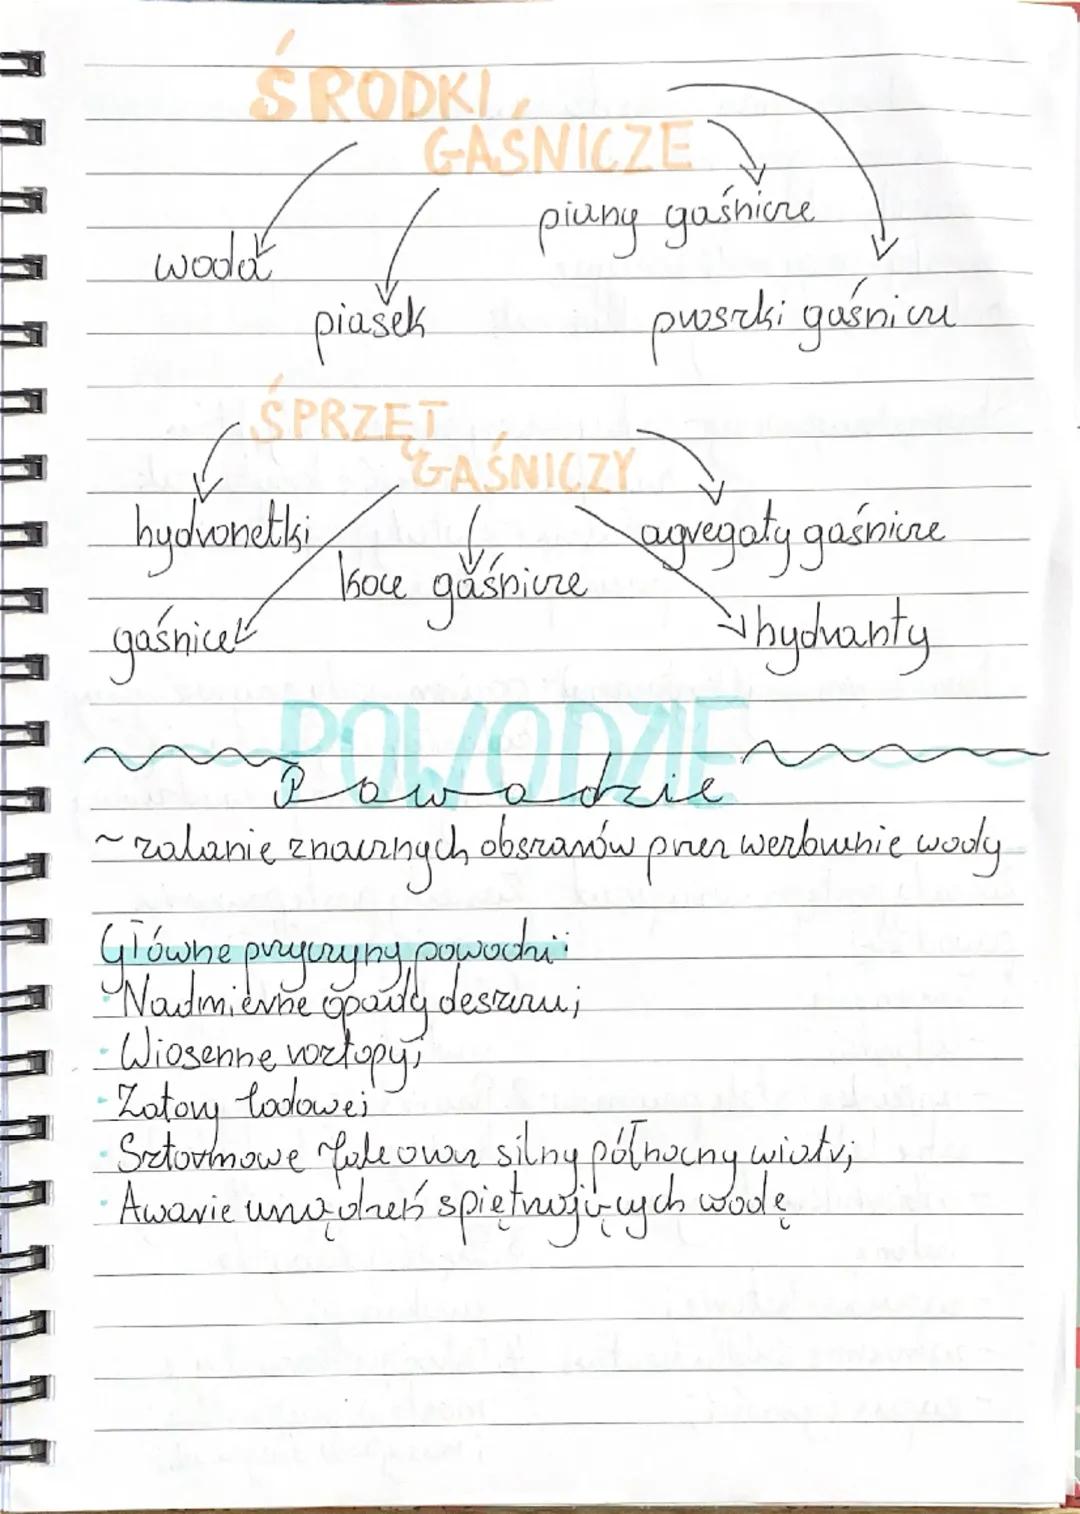 ŚRODKI
GAŚNICZE
piany gaśnicze
woda
piasek
proszki gaśnicze
SPRZĘT
GAŚNICZY
hydronetki
agregaty gaśnicze
koce gaśnicze
gaśnice
hydranty
POWODZIE
Powodzie
~ zalanie znacznych obszarów przez wezbranie wody
Główne przyczyny powodzi:
· Nadmierne opady deszczu;
· Wiosenne roztopy;
· Zatory lodowe;
· Sztormowe fale oraz silny północny wiatr;
· Awarie urządzeń spiętrzających wodę